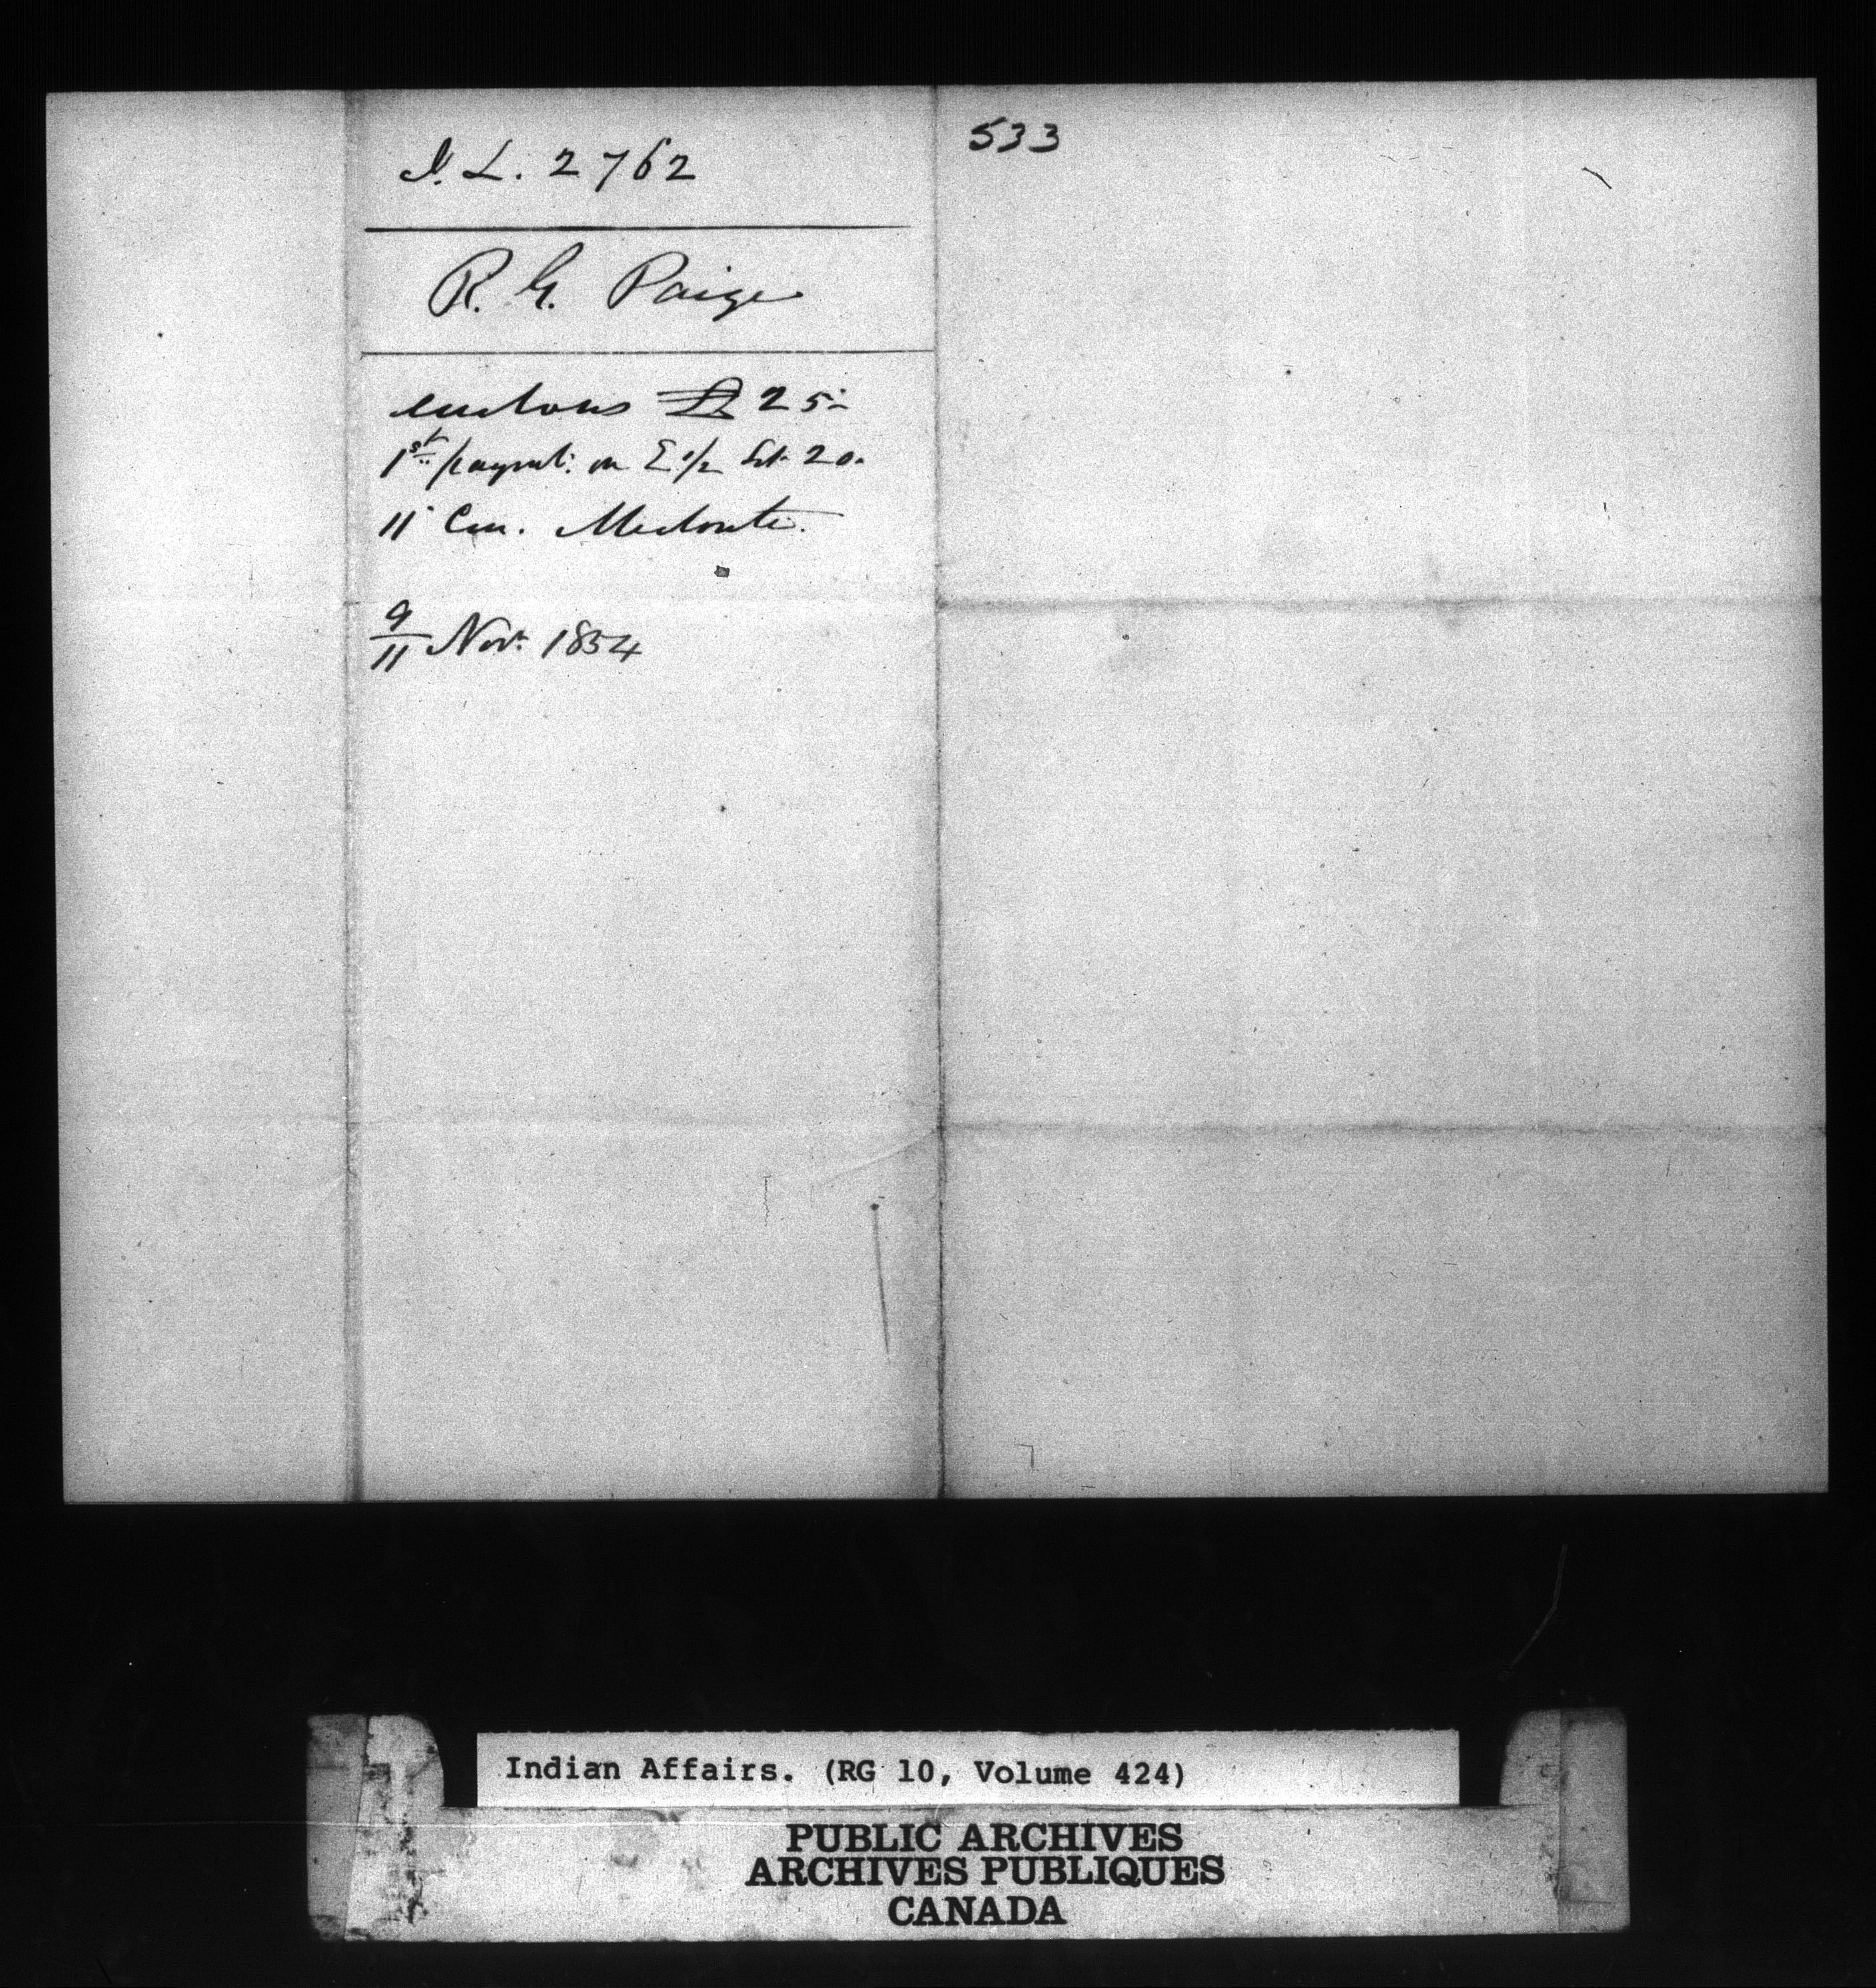 I. L. 2762
R. G. Paige
encloses £25.-
1st paymt. on E 1/2 Lot 20.
11 Con. Medonte.
9/11 Nov. 1854
533
Indian Affairs. (RG 10, Volume 424)
PUBLIC ARCHIVES
ARCHIVES PUBLIQUES
CANADA